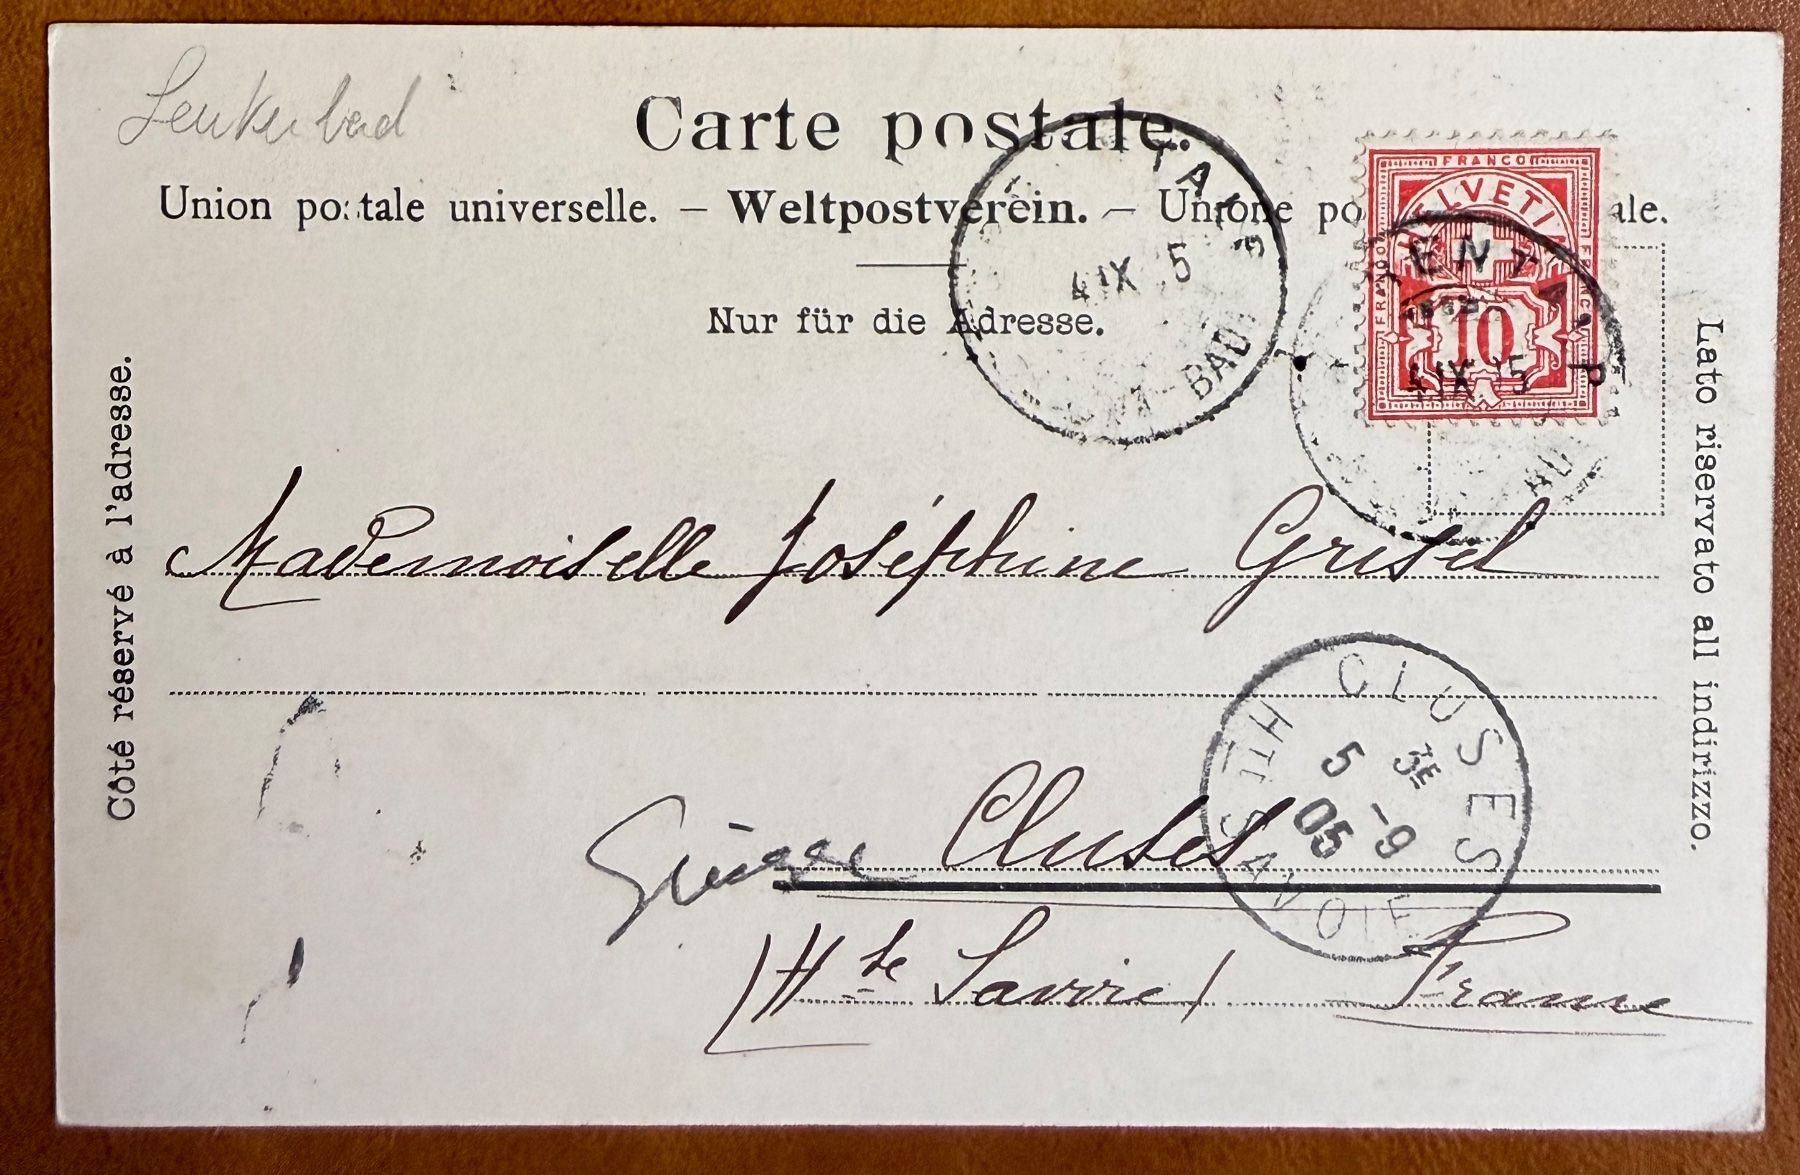 Leukerbad
Carte postale.
Union postale universelle. – Weltpostverein. – Unione po ale.
Nur für die Adresse.
Côté réservé à l'adresse.
Lato riservato all indirizzo.
FRANCO
HELVETIA
FRANCO
FRANCO
10
4 IX 5
BAD
4 IX 5
Mademoiselle Joséphine Grisel
CLUSES
3E
5 -9
05
HTE SAVOIE
Cluses
(Hte Savoie) France